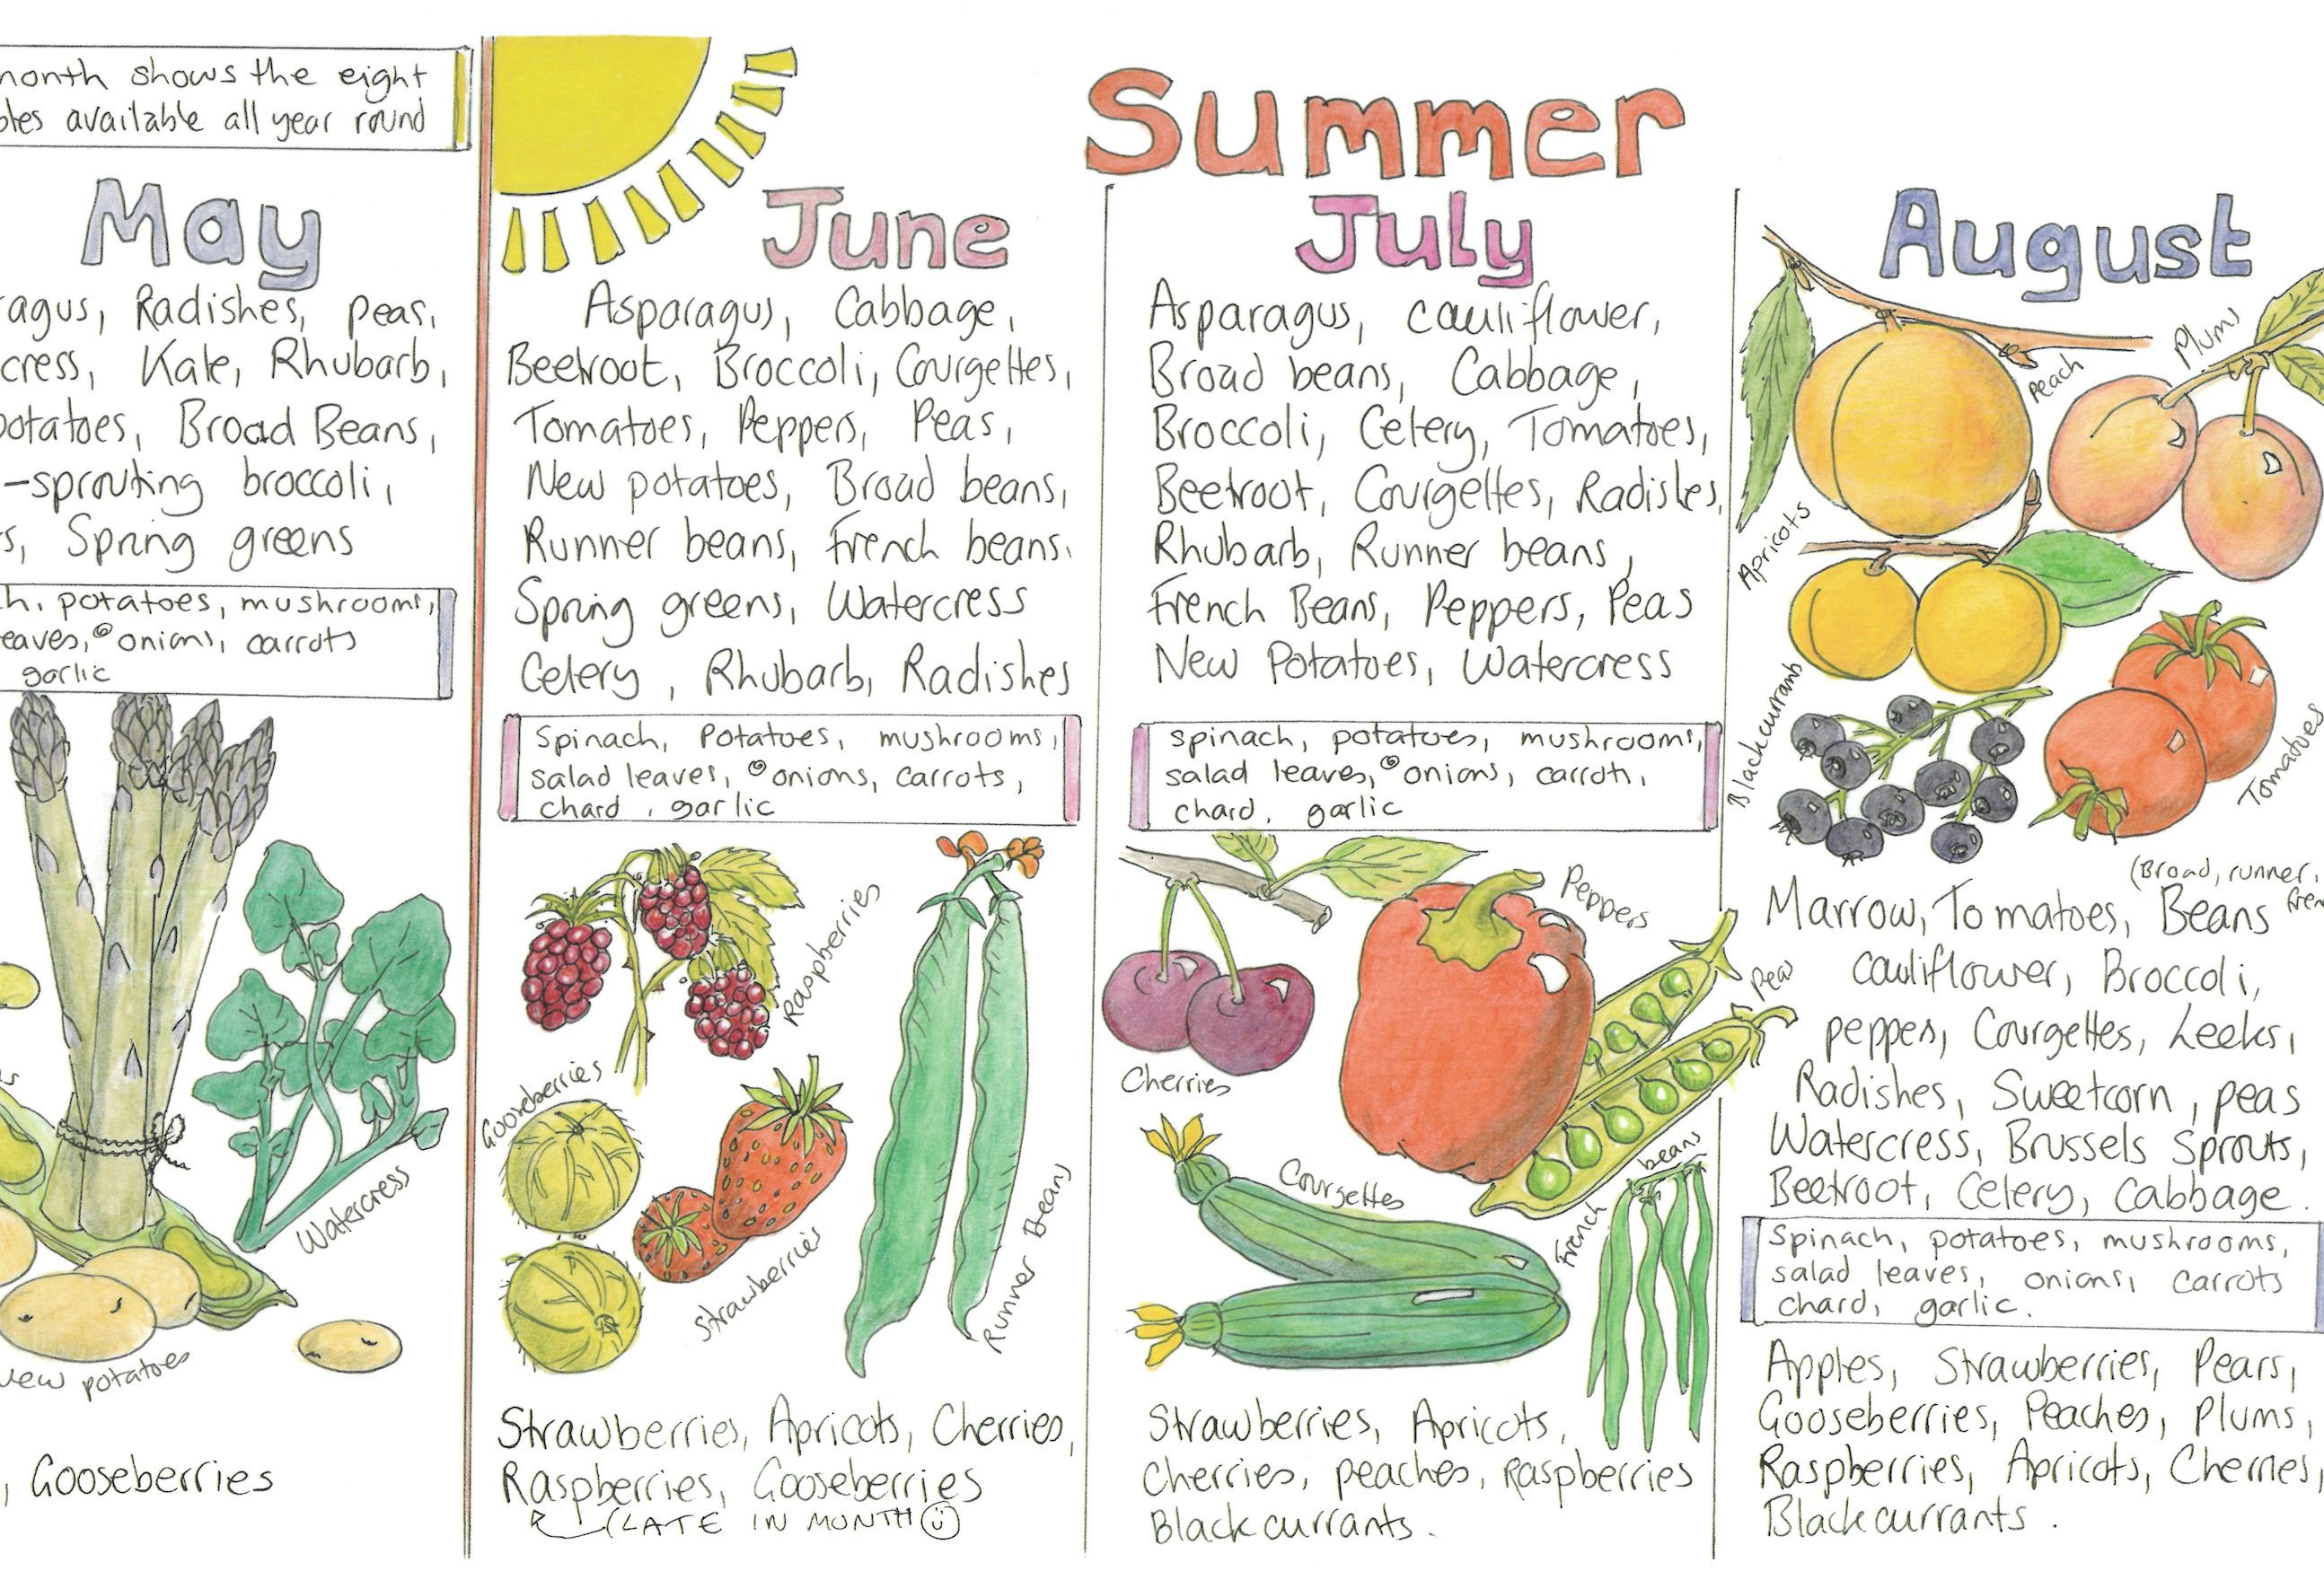 month shows the eight
available all year round
Summer
May
Radishes, peas,
cress, Kale, Rhubarb,
potatoes, Broad Beans,
-sprouting broccoli,
Spring greens
potatoes, mushrooms,
onions, carrots
garlic
Watercress
new potatoes
, Gooseberries
June
Asparagus, Cabbage,
Beetroot, Broccoli, Courgettes,
Tomatoes, Peppers, Peas,
New potatoes, Broad beans,
Runner beans, French beans.
Spring greens, Watercress
Celery, Rhubarb, Radishes
Spinach, Potatoes, mushrooms,
salad leaves, onions, carrots,
chard, garlic
Raspberries
Gooseberries
Strawberries
Runner Beans
Strawberries, Apricots, Cherries,
Raspberries, Gooseberries
(LATE IN MONTH
July
Asparagus, cauliflower,
Broad beans, Cabbage,
Broccoli, Celery, Tomatoes,
Beetroot, Courgettes, Radishes,
Rhubarb, Runner beans,
French Beans, Peppers, Peas
New Potatoes, Watercress
spinach, potatoes, mushrooms,
salad leaves, onions, carrots,
chard, garlic
Peppers
Peas
Cherries
Courgettes
French beans
Strawberries, Apricots,
Cherries, peaches, Raspberries
Blackcurrants.
August
Peach
Plums
Apricots
Blackcurrants
Tomatoes
(Broad, runner,
Marrow, Tomatoes, Beans
Cauliflower, Broccoli,
peppers, Courgettes, Leeks,
Radishes, Sweetcorn, peas
Watercress, Brussels Sprouts,
Beetroot, Celery, Cabbage.
Spinach, potatoes, mushrooms,
salad leaves, onions, carrots
chard, garlic.
Apples, Strawberries, Pears,
Gooseberries, Peaches, Plums,
Raspberries, Apricots, Cherries,
Blackcurrants.